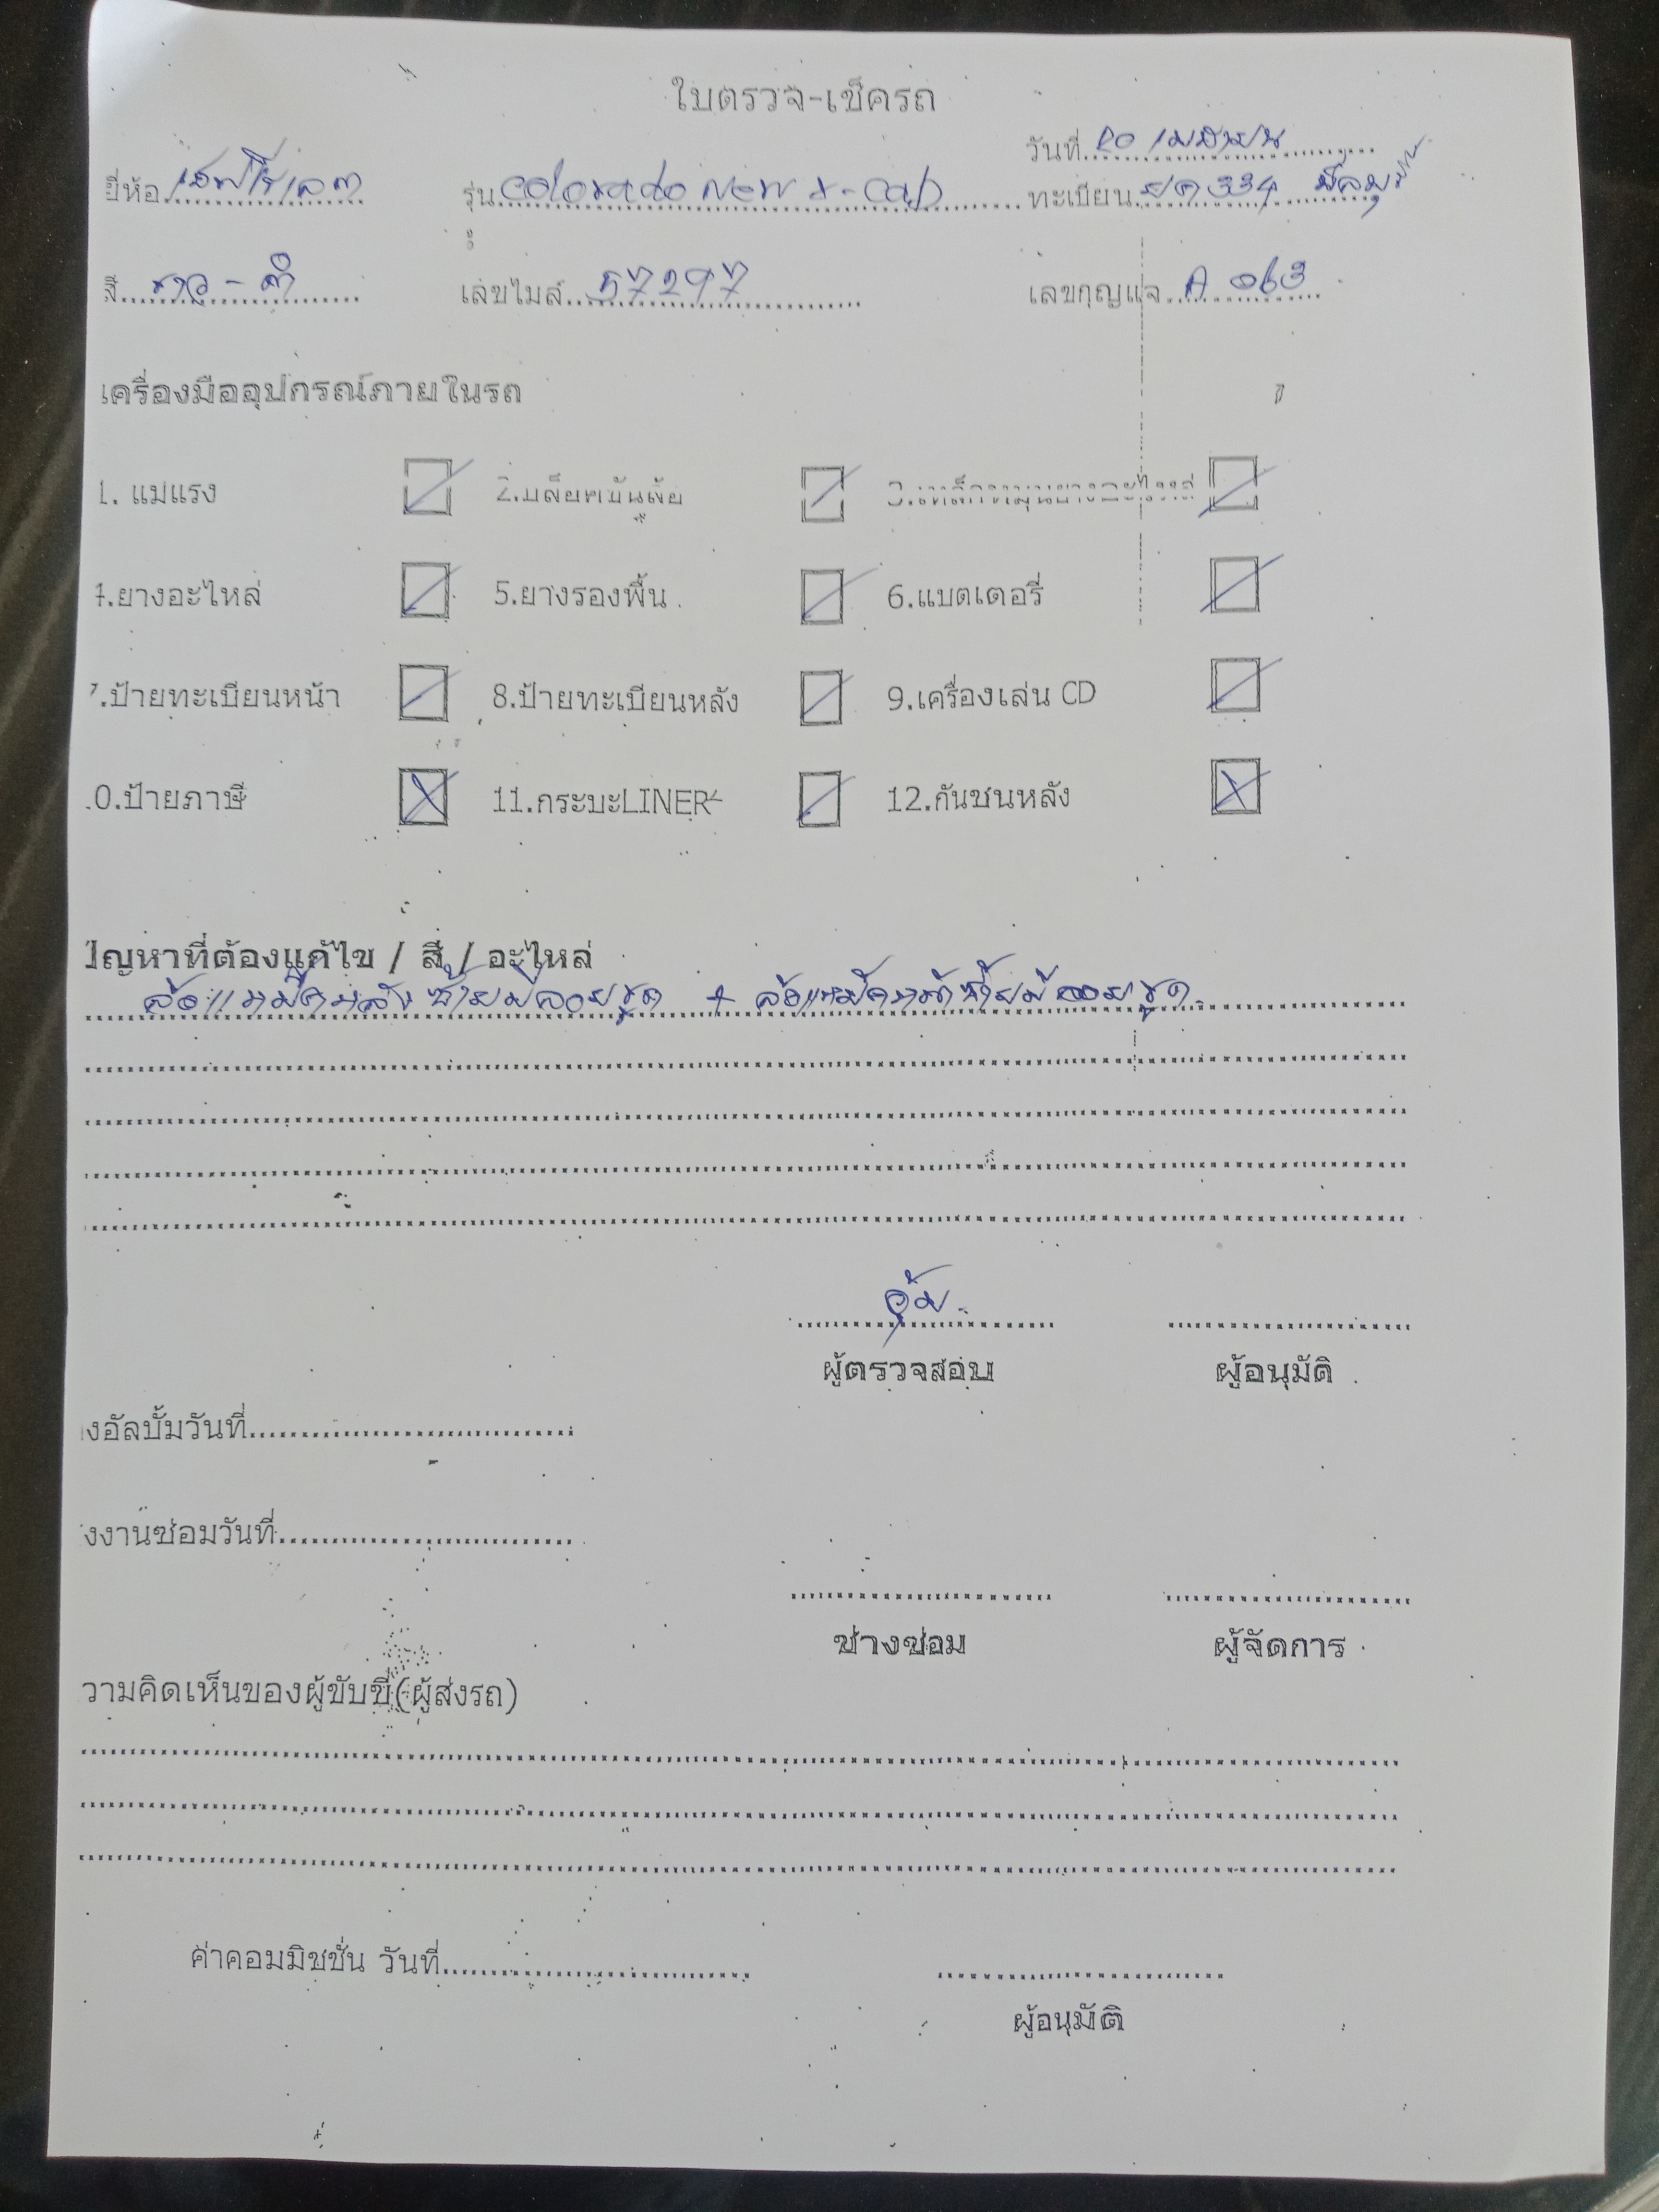 ใบตรวจ-เช็ครถ
วันที่ 20 เมษายน
ยี่ห้อ เชฟโรเลต รุ่น Colorado New X-Cab ทะเบียน 334
สี ขาว - ดำ เลขไมล์ 57297 เลขกุญแจ A 063
เครื่องมืออุปกรณ์ภายในรถ
1. แม่แรง 2.บล็อคขันล้อ
4.ยางอะไหล่ 5.ยางรองพื้น 6.แบตเตอรี่
7.ป้ายทะเบียนหน้า 8.ป้ายทะเบียนหลัง 9.เครื่องเล่น CD
0.ป้ายภาษี 11.กระบะLINER 12.กันชนหลัง
ปัญหาที่ต้องแก้ไข / สี / อะไหล่
ล้อแหม็คหลังซ้ายมีลอยขูด + ล้อแหม็คหน้าซ้ายมีลอยขูด
อุ้ม
ผู้ตรวจสอบ ผู้อนุมัติ
งอัลบั้มวันที่
งงานซ่อมวันที่
ช่างซ่อม ผู้จัดการ
วามคิดเห็นของผู้ขับขี่(ผู้ส่งรถ)
ค่าคอมมิชชั่น วันที่
ผู้อนุมัติ